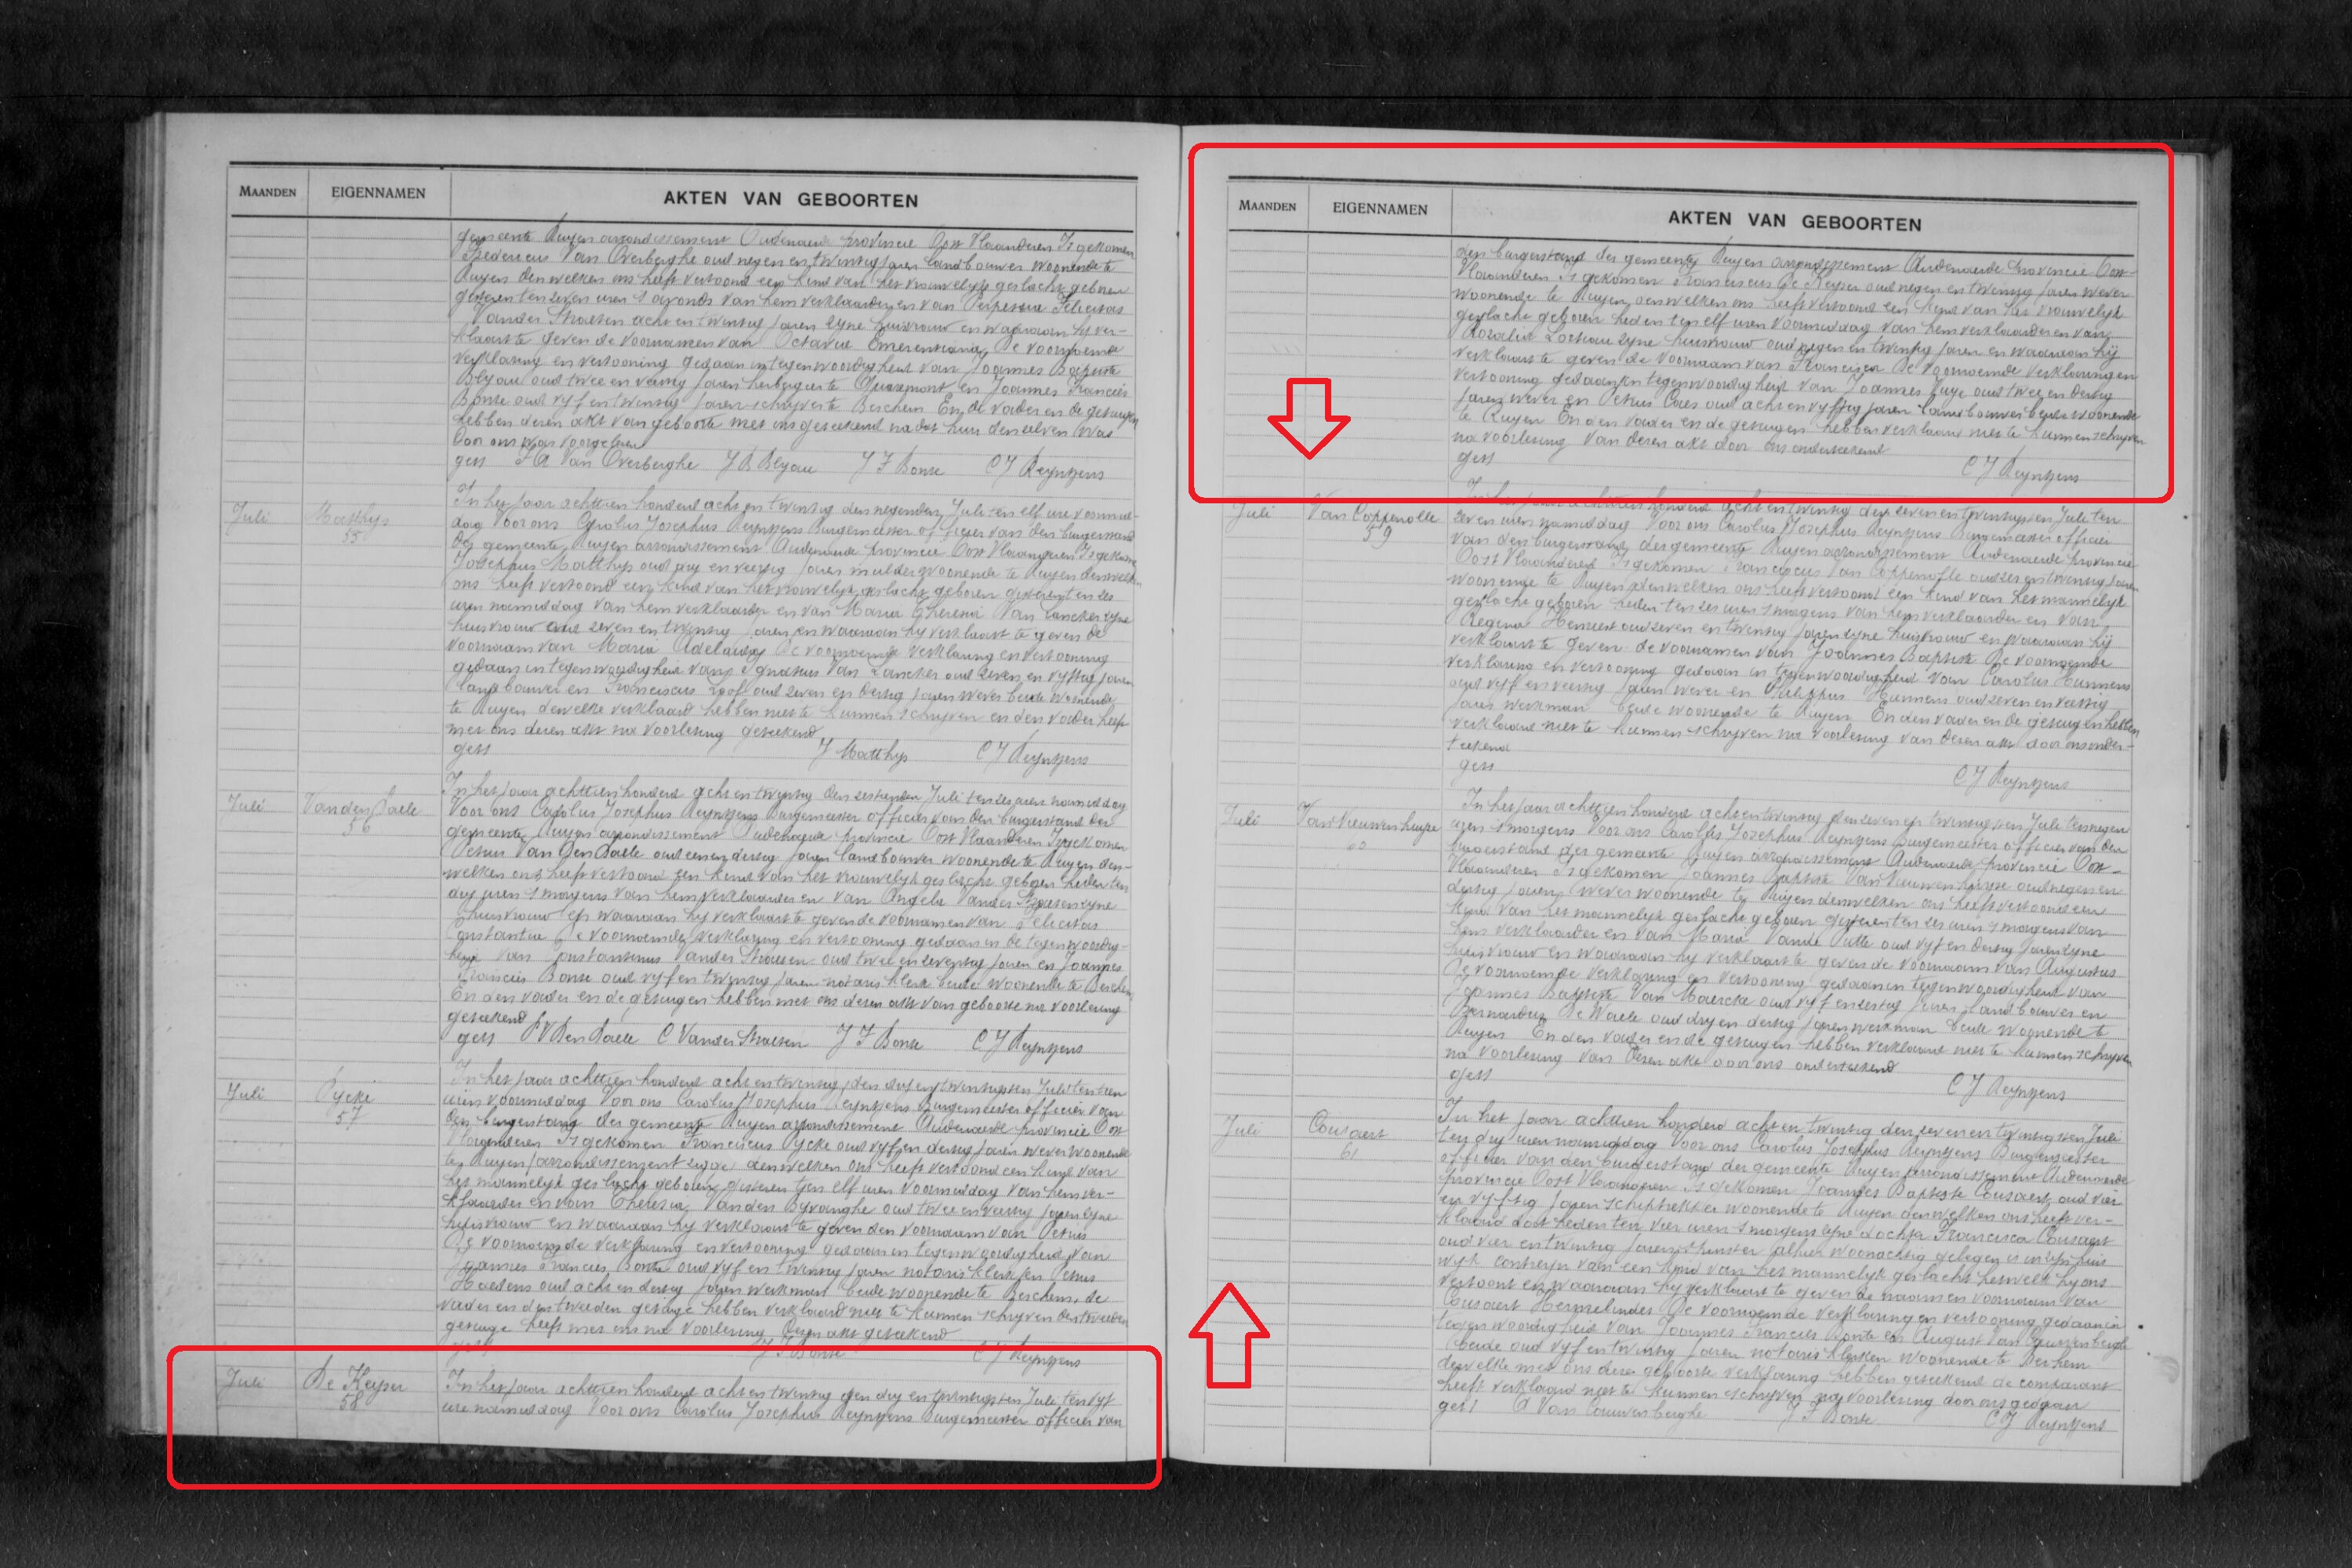 MAANDEN EIGENNAMEN AKTEN VAN GEBOORTEN
gemeente Ruyen arrondissement Oudenaerde provincie Oost Vlaanderen Is gekomen
Fredericus Van Overberghe oud negen en twintig jaren landbouwer woonende te
Ruyen denwelken ons heeft vertoond een kind van het vrouwelijk geslacht geboren
gisteren ten zeven uren s avonds van hem verklaarder en van Perpetua Felicitas
Vander Straeten acht en twintig jaren zyne huisvrouw en waaraan hy ver-
klaart te geven de voornamen van Octavie Emerentiana De voornoemde
verklaring en vertooning gedaan in tegenwoordigheid van Joannes Baptiste
Blyau oud twee en veertig jaren herbergier te Quaremont en Joannes Francies
Bonte oud vyf en twintig jaren schryver te Berchem En de vader en de getuigen
hebben deren akt van geboorte met ons geteekend na dat hun denzelven was
door ons was voorgelezen
get F A Van Overberghe J B Blyau J F Bonte C J Reyntjens
Juli Matthys In het jaar achttien honderd acht en twintig den negenden Juli ten elf ure voormid-
55 dag Voor ons Carolus Josephus Reyntjens Burgemeester officier van den burgerstand
der gemeente Ruyen arrondissement Audenaerde provincie Oost Vlaanderen Is gekomen
Josephus Matthys oud dry en veertig jaren mulder woonende te Ruyen denwelken
ons heeft vertoond een kind van het vrouwelijk geslacht geboren gisteren ten zes
uren namiddag van hem verklaarder en van Maria Theresia Van Lancker zyne
huisvrouw oud zeven en twintig jaren en waaraan hy verklaart te geven de
voornaam van Maria Adelaide De voornoemde verklaring en vertooning
gedaan in tegenwoordigheid van Ignatius Van Lancker oud zeven en vyftig jaren
landbouwer en Franciscus Loof oud zeven en dertig jaren wever beide woonende
te Ruyen dewelke verklaard hebben niet te kunnen schryven en den vader heeft
met ons deren akt na voorlezing geteekend
get J Matthys C J Reyntjens
Juli Vanden Daele In het jaar achttien honderd acht en twintig den zestienden Juli ten zes uren namiddag
56 Voor ons Carolus Josephus Reyntjens Burgemeester officier van den burgerstand der
gemeente Ruyen arrondissement Audenaerde provincie Oost Vlaanderen Is gekomen
Petrus Van Den Daele oud een en dertig jaren landbouwer woonende te Ruyen den-
welken ons heeft vertoond een kind van het vrouwelijk geslacht geboren heden ten
dry uren s morgens van hem verklaarder en van Angela Vander Straeten zyne
huisvrouw en waaraan hy verklaart te geven de voornamen van Felicitas
Constantia De voornoemde verklaring en vertooning gedaan in de tegenwoordig-
heid van Constantinus Vander Straeten oud twee en zeventig jaren en Joannes
Francies Bonte oud vyf en twintig jaren notaris klerk beide woonende te Berchem
En den vader en de getuigen hebben met ons deren akt van geboorte na voorlezing
geteekend
get P V Den Daele C Vander Straeten J F Bonte C J Reyntjens
Juli Pycke In het jaar achttien honderd acht en twintig den dry en twintigsten Juli ten tien
57 uren voormiddag Voor ons Carolus Josephus Reyntjens Burgemeester officier van
den burgerstand der gemeente Ruyen arrondissement Audenaerde provincie Oost
Vlaanderen Is gekomen Franciscus Pycke oud vyf en dertig jaren wever woonende
te Ruyen arrondissement denwelken ons heeft vertoond een kind van
het mannelyk geslacht geboren gisteren ten elf uren voormiddag van hem ver-
klaarder en van Theresia Vanden Byvanghe oud twee en veertig jaren zyne
huisvrouw en waaraan hy verklaart te geven den voornaam van Petrus
De voornoemde verklaring en vertooning gedaan in tegenwoordigheid van
Joannes Francies Bonte oud vyf en twintig jaren notaris klerk en Petrus
Haedens oud acht en dertig jaren werkman beide woonende te Berchem, de
vader en den tweeden getuige hebben verklaard niet te kunnen schryven
getuige heeft met ons na voorlezing deren akt geteekend
get J F Bonte C J Reyntjens
Juli De Keyser In het jaar achttien honderd acht en twintig den dry en twintigsten Juli ten vyf
58 ure namiddag Voor ons Carolus Josephus Reyntjens Burgemeester officier van
MAANDEN EIGENNAMEN AKTEN VAN GEBOORTEN
den burgerstand der gemeente Ruyen arrondissement Audenaerde provincie Oost-
Vlaanderen Is gekomen Franciscus De Keyser oud negen en twintig jaren wever
woonende te Ruyen denwelken ons heeft vertoond een kind van het vrouwelijk
geslacht geboren heden ten elf uren voormiddag van hem verklaarder en van
Rosalia zyne huisvrouw oud negen en twintig jaren en waaraan hij
verklaart te geven de voornaam van Francisca De voornoemde verklaring en
vertooning gedaan in tegenwoordigheid van Joannes Huye oud twee en dertig
jaren wever en Petrus Caes oud acht en vyftig jaren landbouwer beide woonende
te Ruyen En den vader en de getuigen hebben verklaard niet te kunnen schryven
na voorlezing van deren akt door ons onderteekend
get C J Reyntjens
Juli Van Coppenolle In het jaar achttien honderd acht en twintig den zeven en twintigsten Juli ten
59 zeven uren namiddag Voor ons Carolus Josephus Reyntjens Burgemeester officier
van den burgerstand der gemeente Ruyen arrondissement Audenaerde provincie
Oost Vlaanderen Is gekomen Franciscus Van Coppenolle oud zes en twintig jaren
woonende te Ruyen denwelken ons heeft vertoond een kind van het mannelijk
geslacht geboren heden ten zes uren s morgens van hem verklaarder en van
Regina Hemeest oud zeven en twintig jaren zyne huisvrouw en waaraan hij
verklaart te geven de voornamen van Joannes Baptiste De voornoemde
verklaring en vertooning gedaan in tegenwoordigheid van Carolus Hunnens
oud vyf en veertig jaren wever en Philippus Hunnens oud zeven en veertig
jaren werkman beide woonende te Ruyen En den vader en de getuigen hebben
verklaard niet te kunnen schryven na voorlezing van deren akt door ons onder-
teekend
get C J Reyntjens
Juli Van Nieuwenhuyse In het jaar achttien honderd acht en twintig den zeven en twintigsten Juli ten negen
60 uren s morgens Voor ons Carolus Josephus Reyntjens Burgemeester officier van den
burgerstand der gemeente Ruyen arrondissement Audenaerde provincie Oost-
Vlaanderen Is gekomen Joannes Baptiste Van Nieuwenhuyse oud negen en
dertig jaren wever woonende te Ruyen denwelken ons heeft vertoond een
kind van het mannelyk geslacht geboren gisteren ten zes uren s morgens van
hem verklaarder en van Maria Vande Putte oud vyf en dertig jaren zyne
huisvrouw en waaraan hy verklaart te geven de voornaam van Augustus
De voornoemde verklaring en vertooning gedaan in tegenwoordigheid van
Joannes Baptiste Van Maercke oud vyf en zestig jaren landbouwer en
Bernardus De Waele oud dry en dertig jaren werkman beide woonende te
Ruyen En den vader en de getuigen hebben verklaard niet te kunnen schryven
na voorlezing van deren akt door ons onderteekend
get C J Reyntjens
Juli Cousaert In het jaar achttien honderd acht en twintig den zeven en twintigsten Juli
61 ten dry uren namiddag Voor ons Carolus Josephus Reyntjens Burgemeester
officier van den burgerstand der gemeente Ruyen arrondissement Audenaerde
provincie Oost Vlaanderen Is gekomen Joannes Baptiste Cousaert oud vier
en vyftig jaren schiptrekker woonende te Ruyen denwelken ons heeft ver-
klaard dat heden ten vier uren s morgens zyne dochter Francisca Cousaert
oud vier en twintig jaren alhier woonachtig gelegen is in zyn huis
wyk van een kind van het mannelyk geslacht hetwelk hy ons
vertoont en waaraan hy verklaart te geven de naam en voornaam van
Cousaert Hermelindus De voornoemde verklaring en vertooning gedaan in
tegenwoordigheid van Joannes Francies Bonte en August Van Cauwenberghe
beide oud vyf en twintig jaren notaris klerken woonende te Berchem
dewelke met ons deze geboorte verklaring hebben geteekend de comparant
heeft verklaard niet te kunnen schryven na voorlezing door ons gedaan
get A Van Cauwenberghe J F Bonte C J Reyntjens